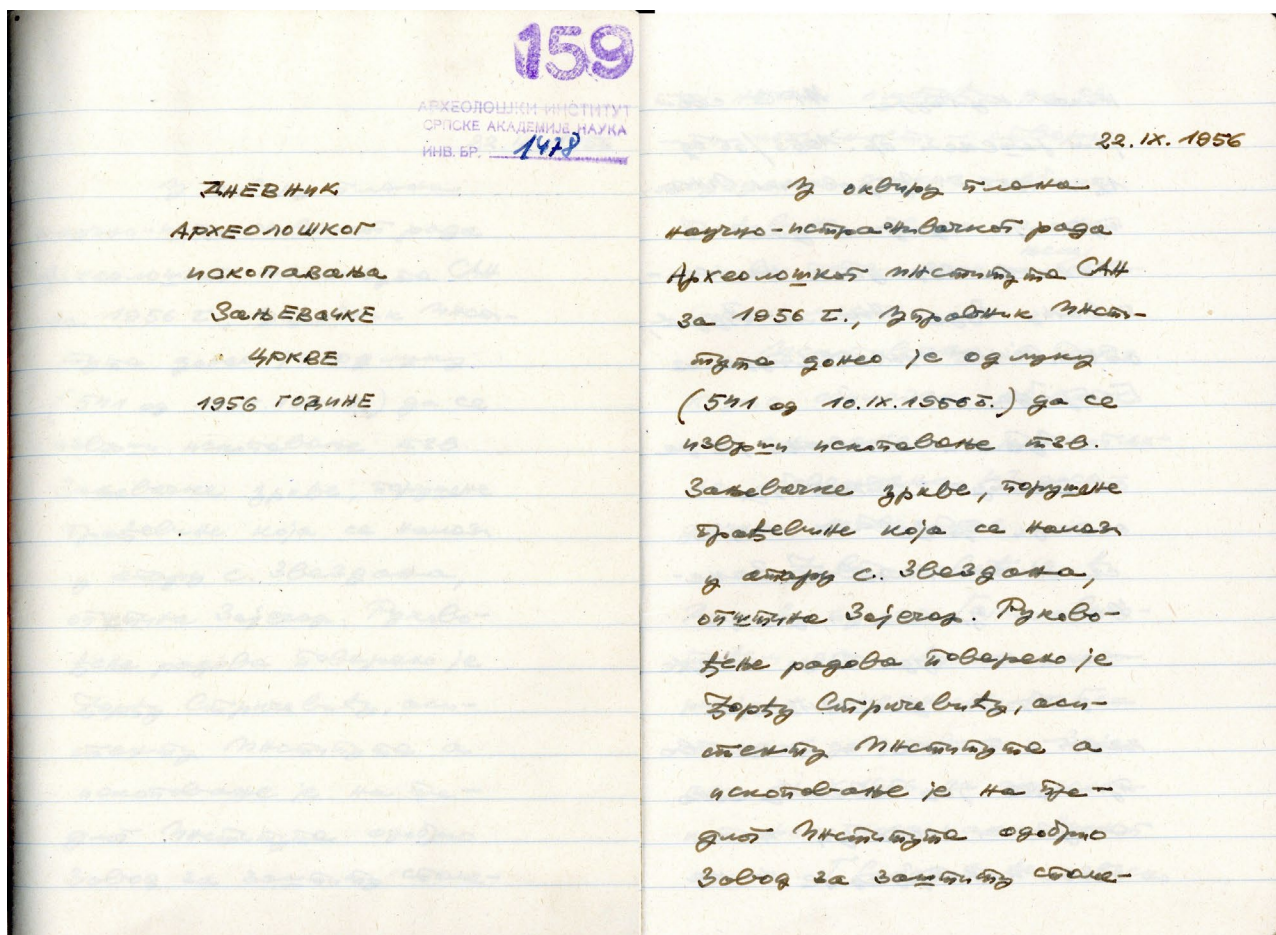 159
АРХЕОЛОШКИ ИНСТИТУТ
СРПСКЕ АКАДЕМИЈЕ НАУКА
ИНВ. БР. 1478
ДНЕВНИК
АРХЕОЛОШКОГ
ИСКОПАВАЊА
ЗАЊЕВАЧКЕ
ЦРКВЕ
1956 ГОДИНЕ
22.IX.1956
У оквиру плана
научно-истраживачког рада
Археолошког Института САН
за 1956 г., Управник Инсти-
тута донео је одлуку
(541 од 10.IX.1956 г.) да се
изврши ископавање тзв.
Зањевачке цркве, порушене
грађевине која се налази
у атару с. Звездана,
општина Зајечар. Руково-
ђење радова поверено је
Ђорђу Стричевићу, аси-
стенту Института а
ископавање је на пре-
длог Института одобрио
Завод за заштиту споме-